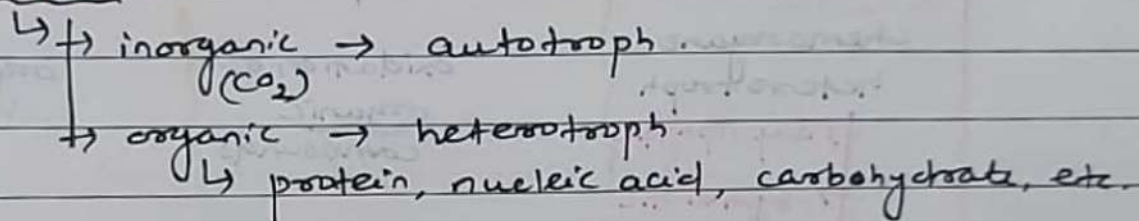 ↳ → inorganic → autotroph.
(CO₂)
→ organic → heterotroph
↳ protein, nucleic acid, carbohydrate, etc.